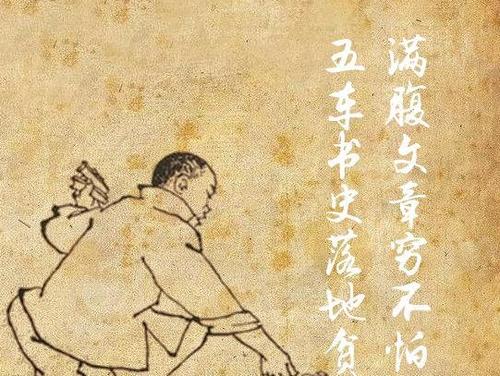 满腹文章穷不怕
五车书史落地贫